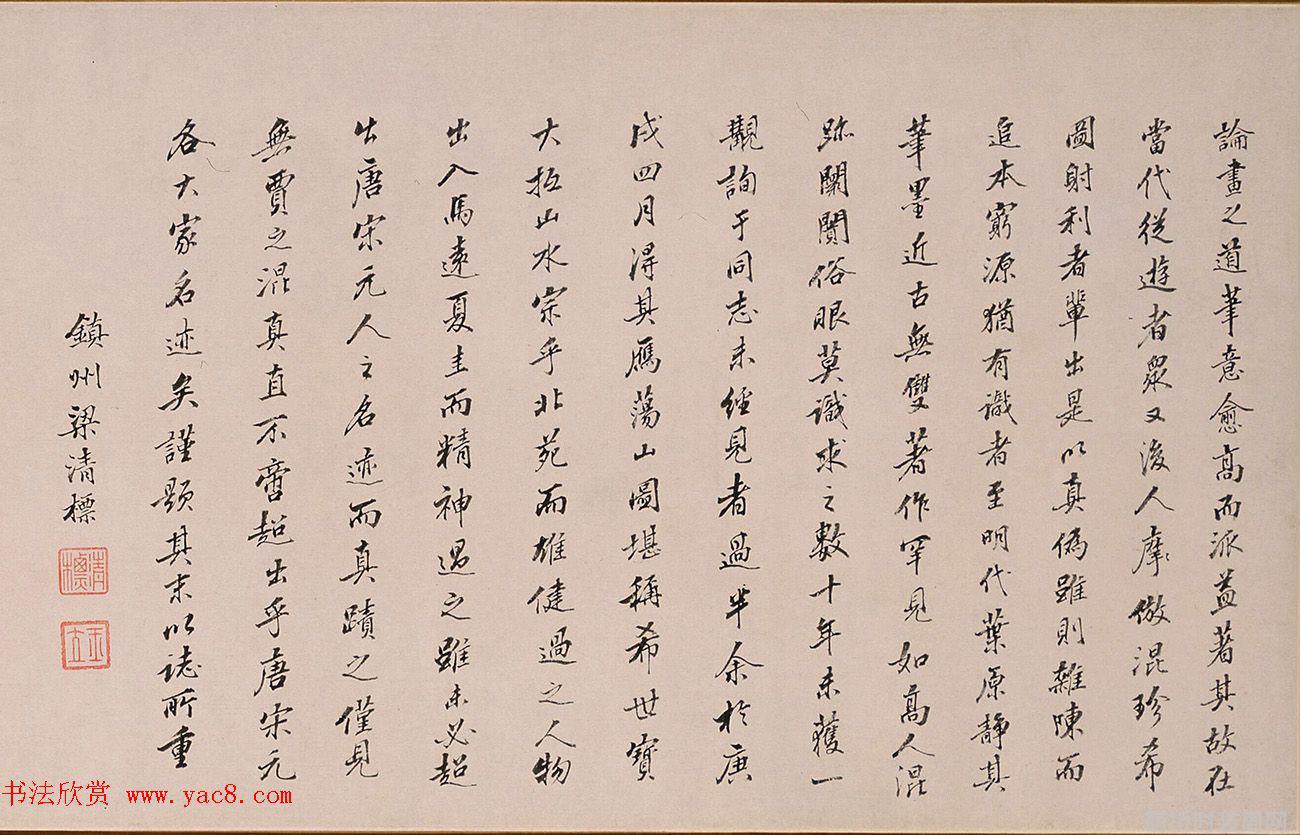 論畫之道筆意愈高而派益著其故在
當代從遊者衆又後人摩倣混珍希
圖射利者輩出是以真偽雖則雜陳而
追本窮源猶有識者至明代葉原靜其
筆墨近古無雙著作罕見如高人混
跡闤闠俗眼莫識求之數十年未獲一
觀詢于同志未經見者過半余於庚
戌四月得其鴈蕩山圖堪稱希世寶
大抵山水宗乎北苑而雄健過之人物
出入馬遠夏圭而精神過之雖未必超
出唐宋元人之名迹而真蹟之僅見
無賈之混真直不啻超出乎唐宋元
各大家名迹矣謹題其末以誌所重
鎮州梁清標
清標
玉立
书法欣赏 www.yac8.com